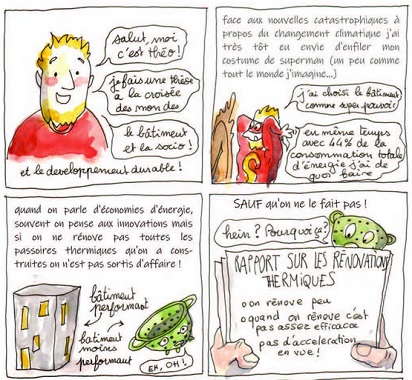 salut, moi
c'est théo!
je fais une thèse
à la croisée
des mondes
le bâtiment
et la socio!
et le developpement durable!
face aux nouvelles catastrophiques à
propos du changement climatique j'ai
très tôt eu envie d'enfiler mon
costume de superman (un peu comme
tout le monde j'imagine...)
j'ai choisi le bâtiment
comme super pouvoir
en même temps
avec 44% de la
consommation totale
d'énergie j'ai de
quoi faire
quand on parle d'économies d'énergie,
souvent on pense aux innovations mais
si on ne rénove pas toutes les
passoires thermiques qu'on a cons-
truites on n'est pas sortis d'affaire !
bâtiment
performant
bâtiment
moins
performant
EH, OH!
SAUF qu'on ne le fait pas !
hein? Pourquoi ça?
RAPPORT SUR LES RÉNOVATIONS
THERMIQUES
o on rénove peu
o quand on rénove c'est
pas assez efficace
pas d'acceleration
en vue!